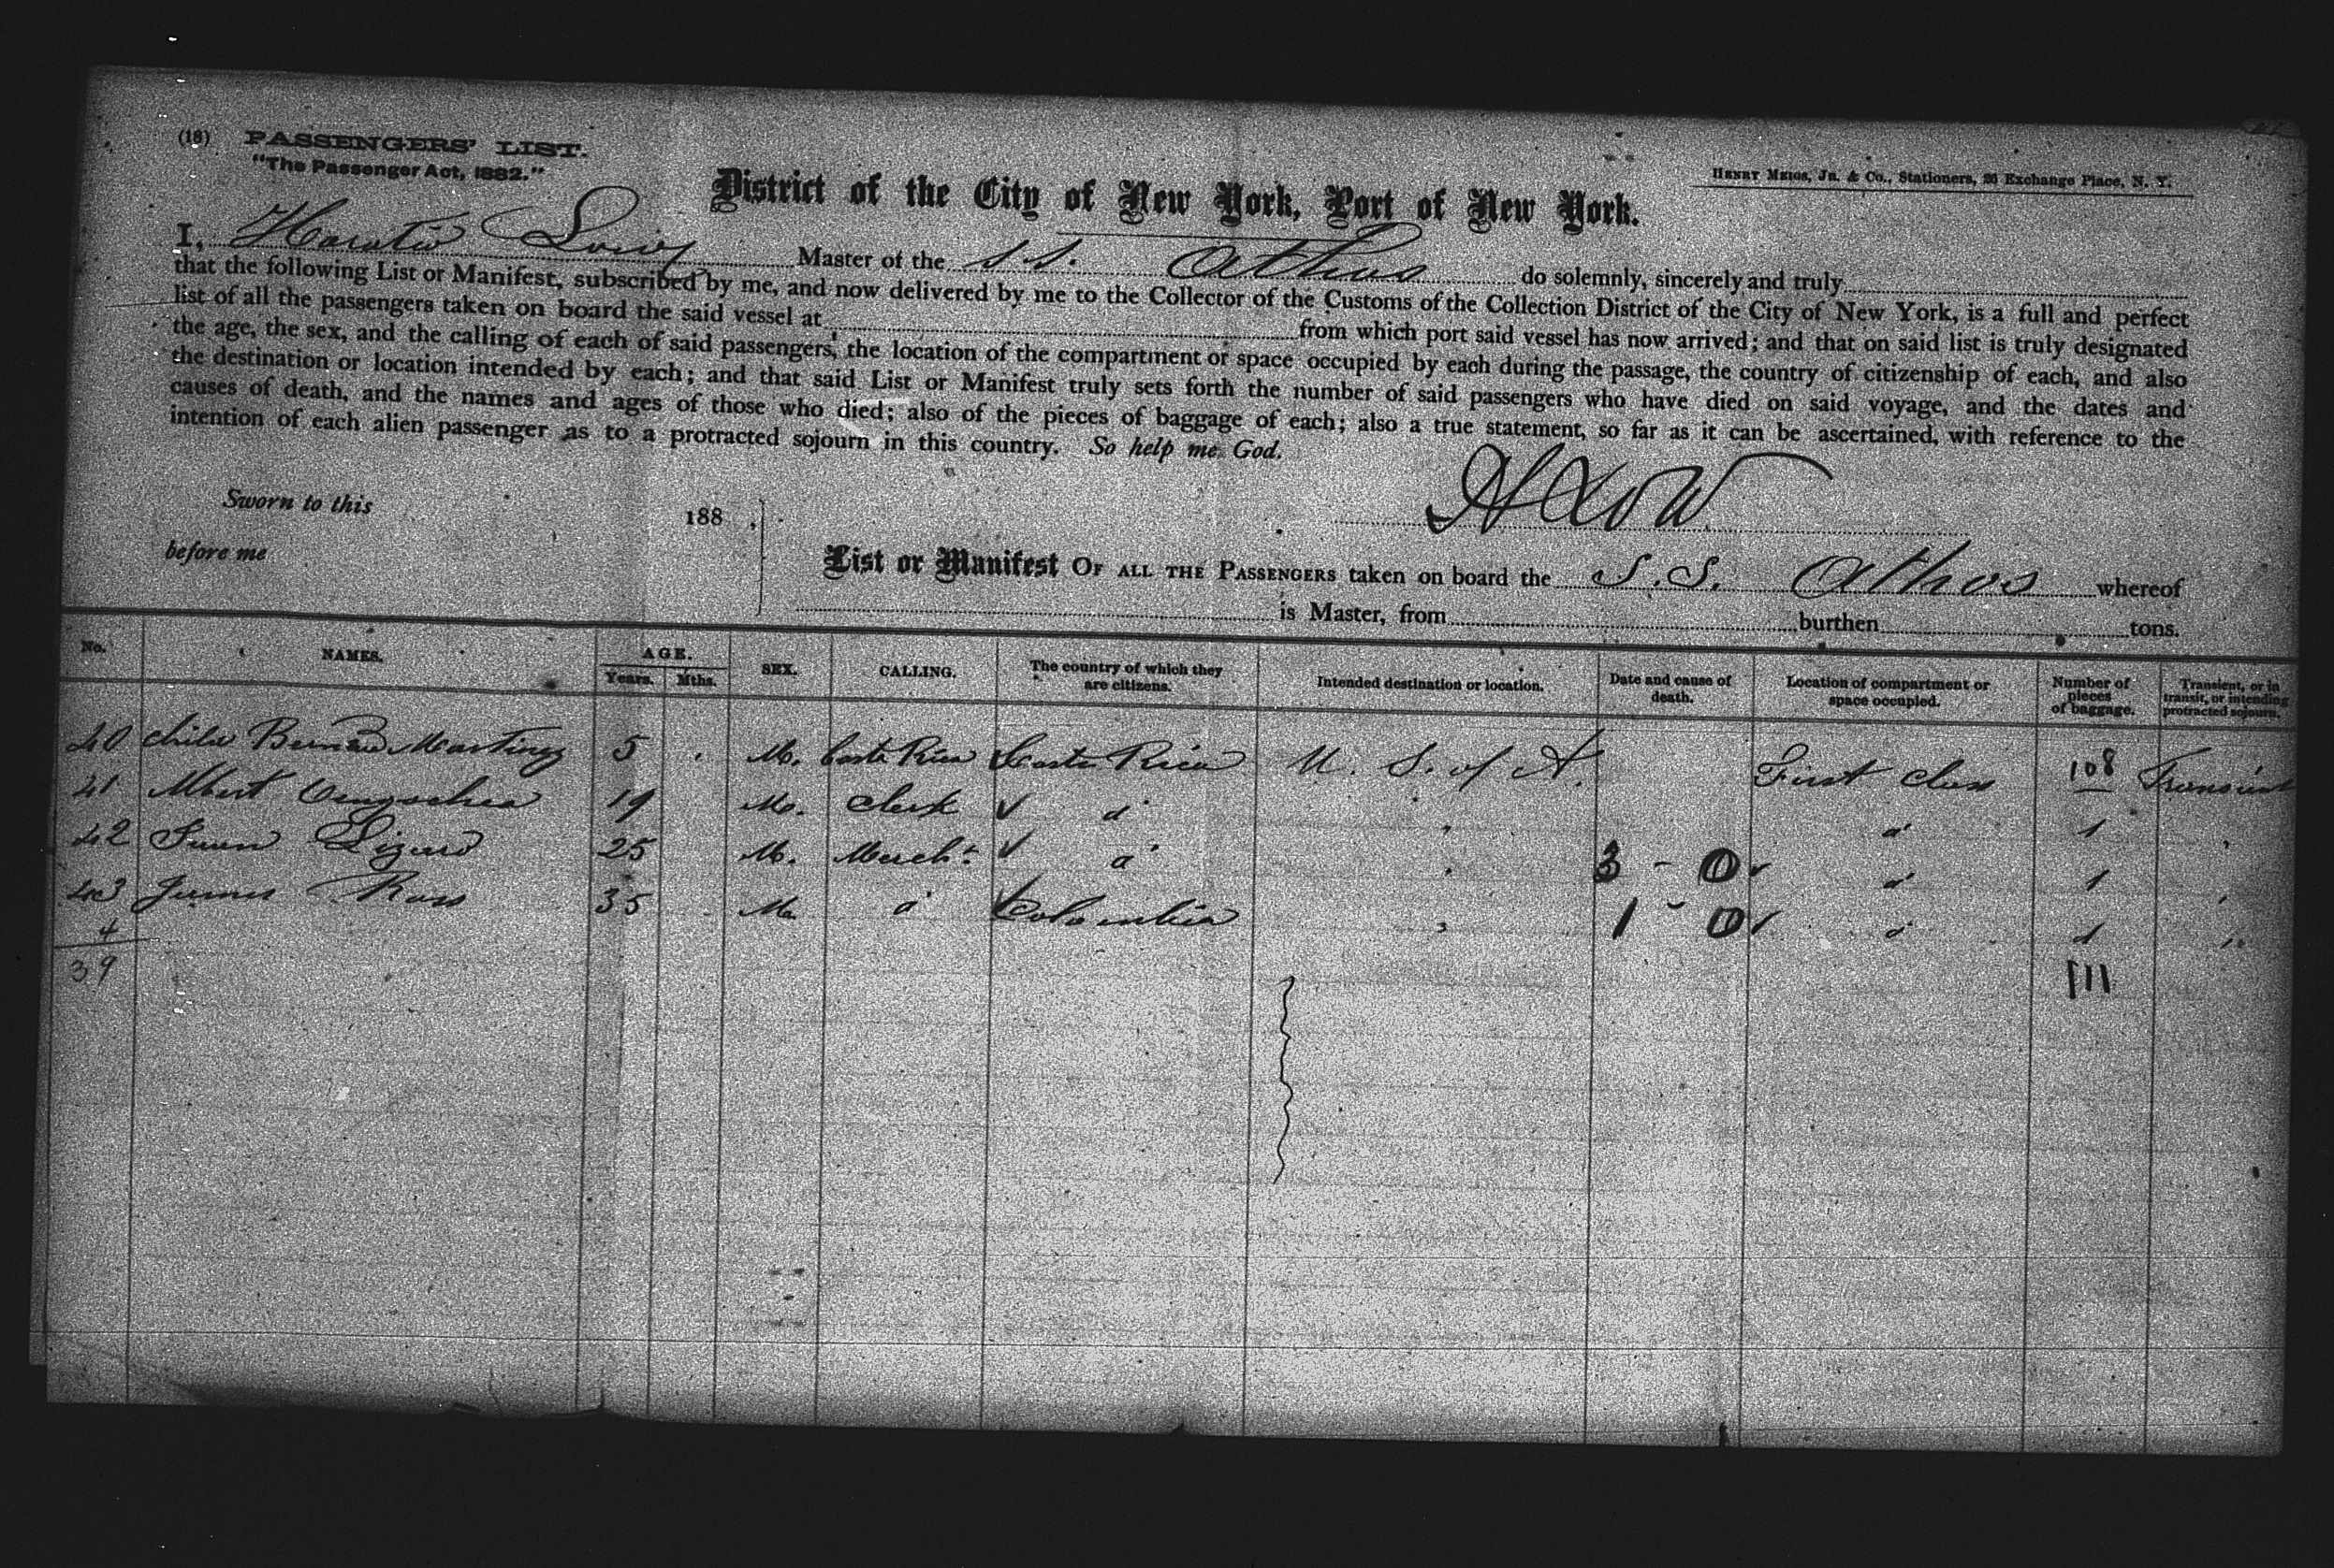 (18) PASSENGERS' LIST.
"The Passenger Act, 1882."
HENRY MEIGS, JR. & CO., Stationers, Exchange Place, N. Y.
District of the City of New York, Port of New York.
I, Horatio Low Master of the S.S. Athos do solemnly, sincerely and truly
that the following List or Manifest, subscribed by me, and now delivered by me to the Collector of the Customs of the Collection District of the City of New York, is a full and perfect
list of all the passengers taken on board the said vessel at from which port said vessel has now arrived; and that on said list is truly designated
the age, the sex, and the calling of each of said passengers, the location of the compartment or space occupied by each during the passage, the country of citizenship of each, and also
the destination or location intended by each; and that said List or Manifest truly sets forth the number of said passengers who have died on said voyage, and the dates and
causes of death, and the names and ages of those who died; also of the pieces of baggage of each; also a true statement, so far as it can be ascertained, with reference to the
intention of each alien passenger as to a protracted sojourn in this country. So help me God.
H Low
Sworn to this 188 ,
before me
List or Manifest OF ALL THE PASSENGERS taken on board the S. S. Athos whereof
is Master, from burthen tons.
No. NAMES. AGE. Years. Mths. SEX. CALLING. The country of which they are citizens. Intended destination or location. Date and cause of death. Location of compartment or space occupied. Number of pieces of baggage. Transient, or in transit, or intending protracted sojourn.
40 Child 5 M. Costa Rica Costa Rica U. S. of A. First class 108 Transient
41 Albert 19 M. Clerk ✓ d 1
42 Juan 25 M. Mercht ✓ d 3 - 0 ✓ d 1
43 James Ross 35 M. d Colombia 1 - 0 ✓ d 1 "
4
39 111